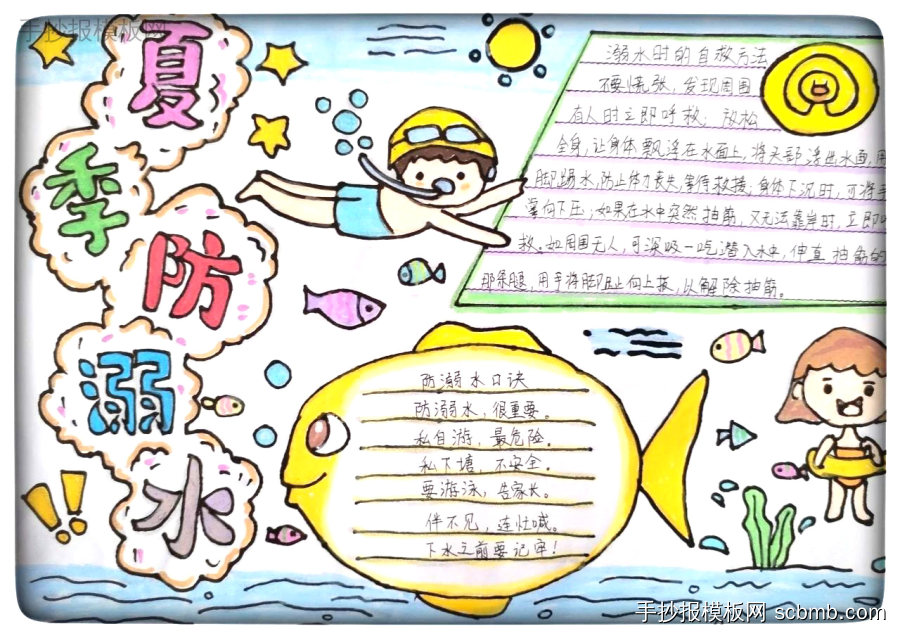 手抄报模板网
夏
季
防
溺
水
溺水时的自救方法
不要慌张，发现周围
有人时立即呼救；放松
全身，让身体飘浮在水面上，将头部浮出水面，用
脚踢水，防止体力丧失，等待救援；身体下沉时，可将手
掌向下压；如果在水中突然抽筋，又无法靠岸时，立即呼
救。如周围无人，可深吸一吃潜入水中，伸直抽筋的
那条腿，用手将脚趾向上扳，以解除抽筋。
防溺水口诀
防溺水，很重要。
私自游，最危险。
私下塘，不安全。
要游泳，告家长。
伴不见，连忙喊。
下水之前要记牢！
手抄报模板网 scbmb.com